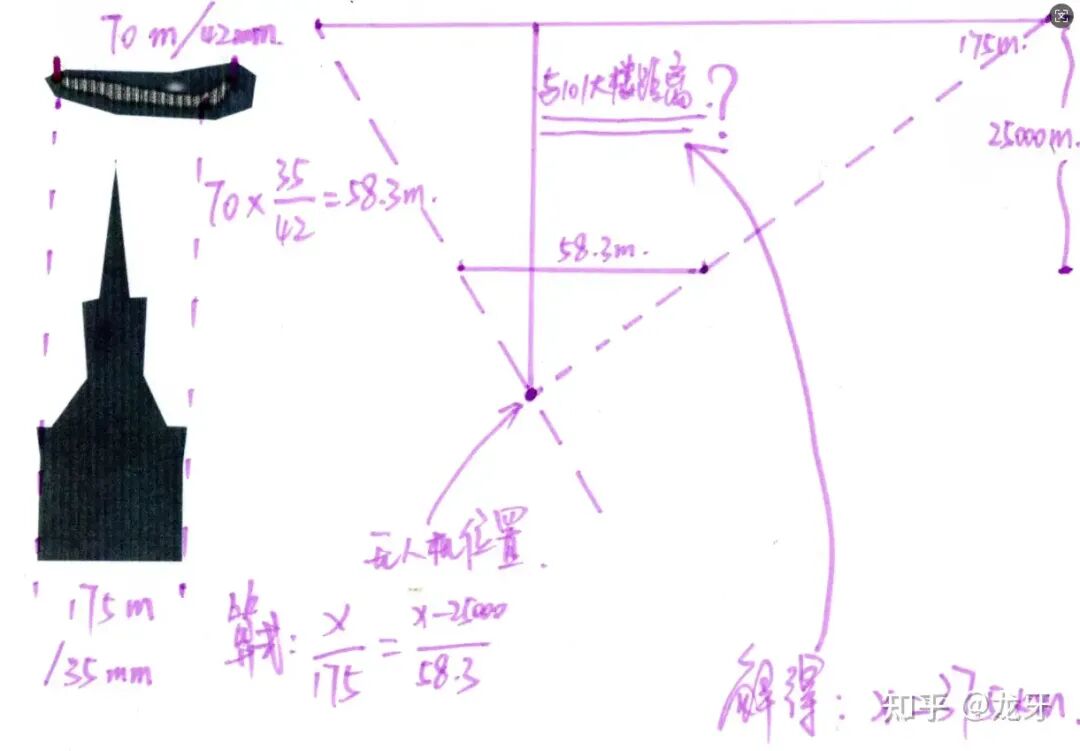 70 m/42mm.
175m.
与101大楼距离?
25000m.
70×35/42=58.3m.
58.3m.
无人机位置.
175m
/35mm
算式: x/175=x-25000/58.3
解得:
知乎 @龙牙